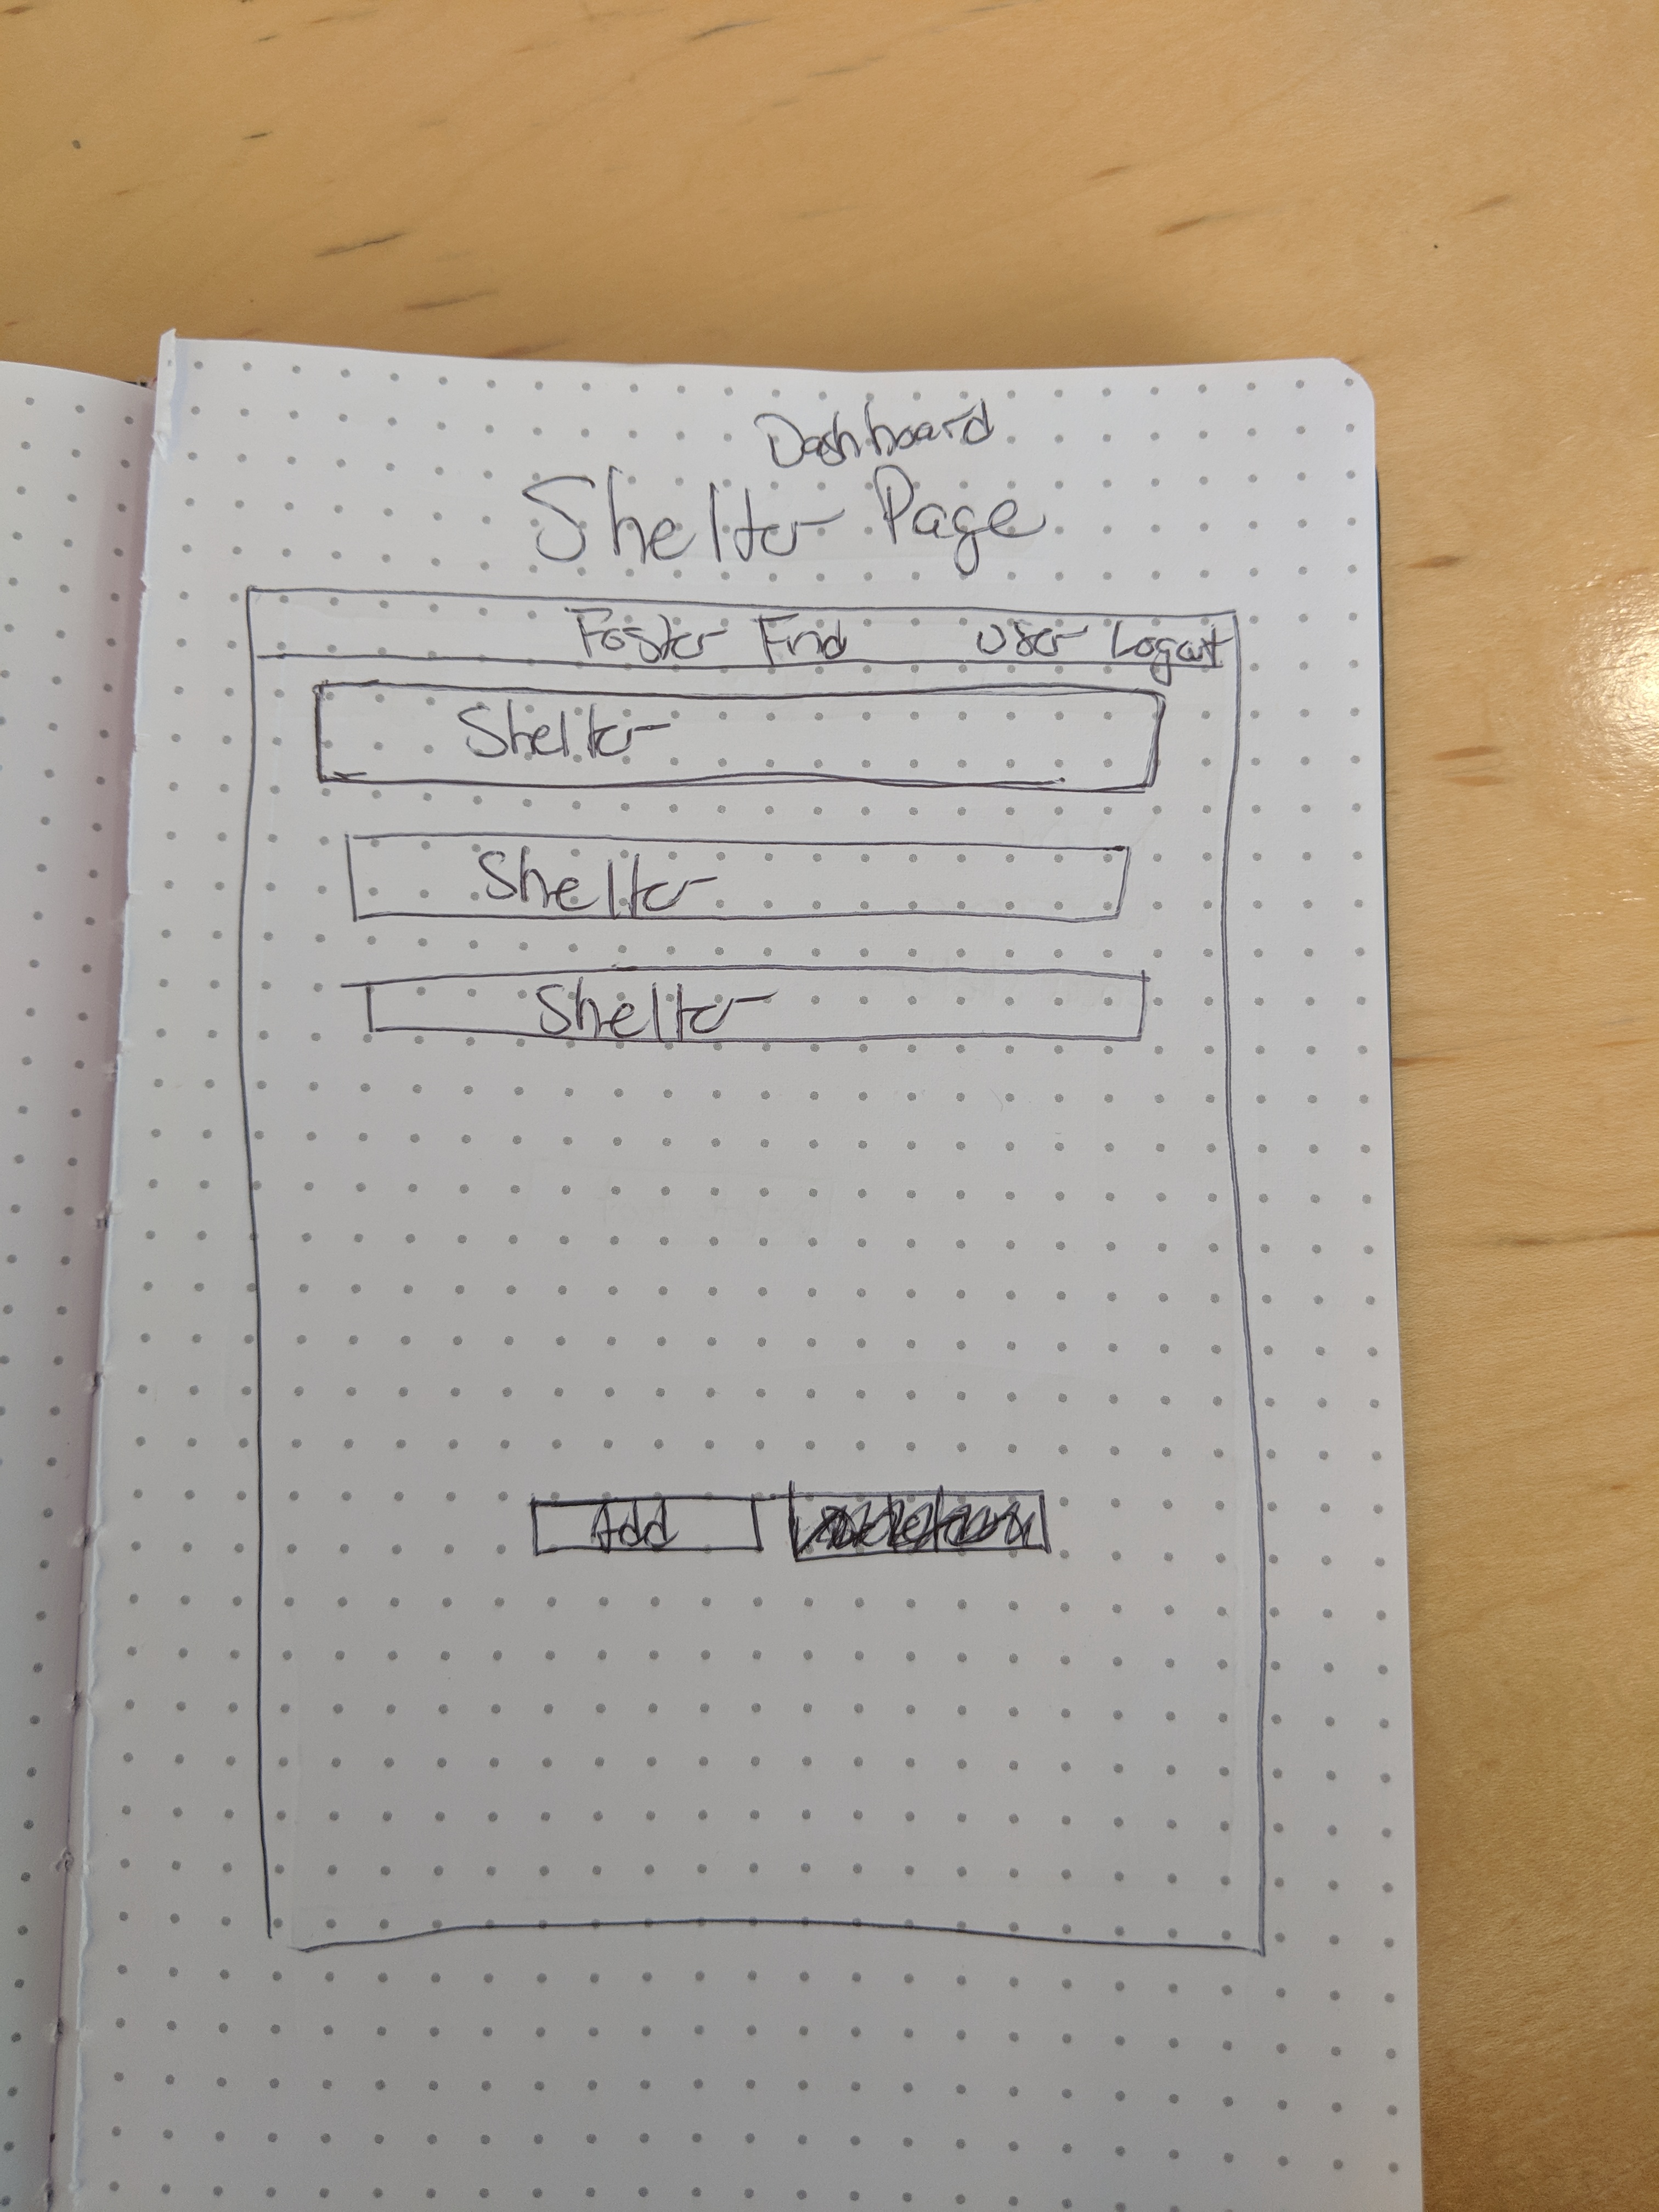 Dashboard
Shelter Page
Foster Find User Logout
Shelter
Shelter
Shelter
Add